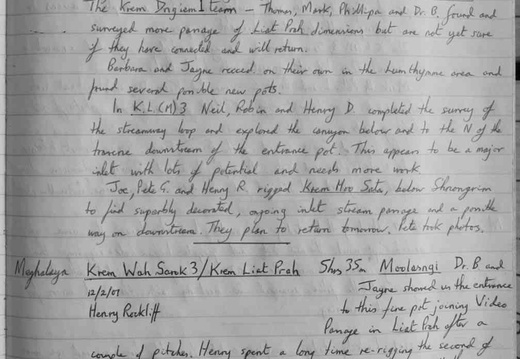 The Krem Drigiem I team – Thomas, Mark, Phillipa and Dr. B, found and
surveyed more passage of Liat Prah dimensions but are not yet sure
if they have connected and will return.
Barbara and Jayne recced on their own in the Lumthymme area and
found several possible new pots.
In K.L.(M) 3 Neil, Robin and Henry D completed the survey of
the streamway loop and explored the canyon below and to the N of the
traverse downstream of the entrance pot. This appears to be a major
inlet with lots of potential and needs more work
Joe, Pete G. and Henry R. rigged Krem Hoo Sata, below Shnongrim
to find superbly decorated, ongoing inlet stream passage and a possible
way on downstream. They plan to return tomorrow. Pete took photos.
Meghalaya Krem Wah Sarok 3/Krem Liat Prah 5hrs 35m Moolasngi Dr. B and
12/2/07 Jayne showed us the entrance
Henry Rockliff to this fine pot joining Video
Passage in Liat Prah after a
couple of pitches. Henry spent a long time re-rigging the second of